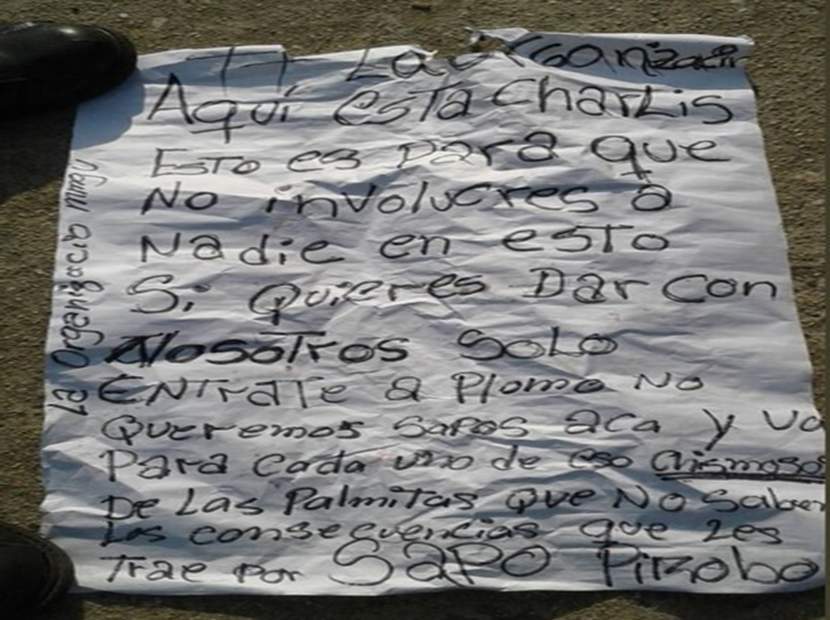 La organizacion
Aqui esta Charlis
Esto es para que
No involucres a
Nadie en esto
Si Quieres Dar con
Nosotros solo
ENTrate a Plomo No
Queremos sapos aca y va
Para cada uno de eso chismosos
De Las Palmitas que No saben
Las consecuencias que les
Trae por SAPO Pirobo
La organizacio